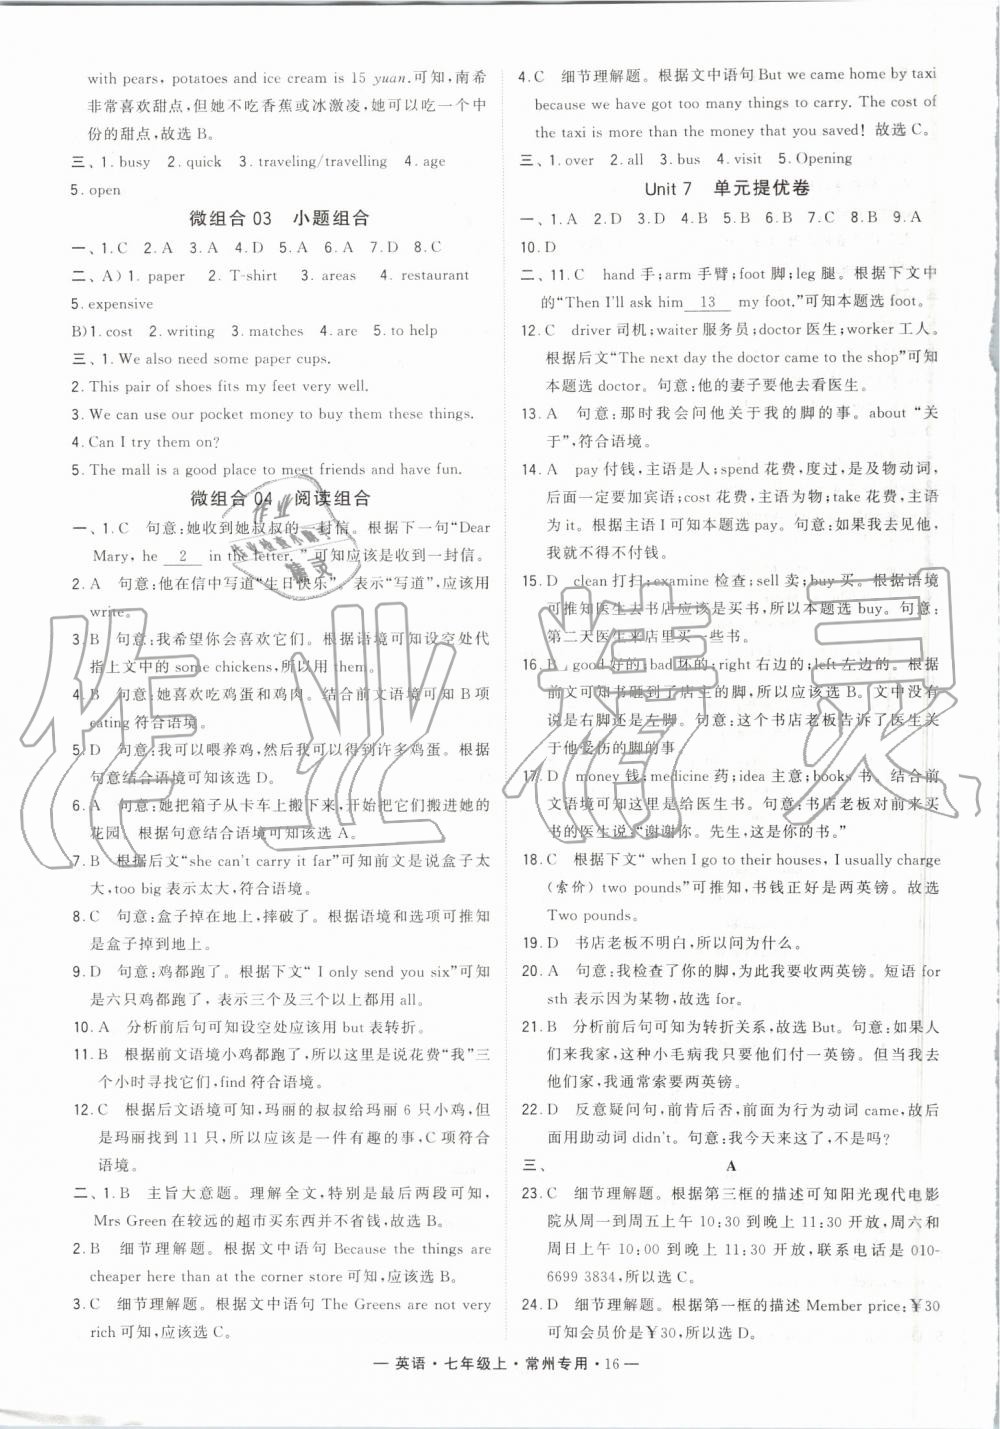 with pears, potatoes and ice cream is 15 yuan. 可知,南希
非常喜欢甜点,但她不吃香蕉或冰激凌,她可以吃一个中
份的甜点,故选 B。
三、1. busy 2. quick 3. traveling/travelling 4. age
5. open
微组合 03 小题组合
一、1. C 2. A 3. A 4. D 5. A 6. A 7. D 8. C
二、A) 1. paper 2. T-shirt 3. areas 4. restaurant
5. expensive
B) 1. cost 2. writing 3. matches 4. are 5. to help
三、1. We also need some paper cups.
2. This pair of shoes fits my feet very well.
3. We can use our pocket money to buy them these things.
4. Can I try them on?
5. The mall is a good place to meet friends and have fun.
微组合 04 阅读组合
一、1. C 句意:她收到她叔叔的一封信。根据下一句“Dear
Mary, he 2 in the letter. ”可知应该是收到一封信。
2. A 句意:他在信中写道“生日快乐”。表示“写道”,应该用
write。
3. B 句意:我希望你会喜欢它们。根据语境可知设空处代
指上文中的 some chickens,所以用 them。
4. B 句意:她喜欢吃鸡蛋和鸡肉。结合前文语境可知 B 项
eating 符合语境。
5. D 句意:我可以喂养鸡,然后我可以得到许多鸡蛋。根据
句意结合语境可知该选 D。
6. A 句意:她把箱子从卡车上搬下来,开始把它们搬进她的
花园。根据句意结合语境可知该选 A。
7. B 根据后文“she can't carry it far”可知前文是说盒子太
大,too big 表示太大,符合语境。
8. C 句意:盒子掉在地上,摔破了。根据语境和选项可推知
是盒子掉到地上。
9. D 句意:鸡都跑了。根据下文“ I only send you six”可知
是六只鸡都跑了,表示三个及三个以上都用 all。
10. A 分析前后句可知设空处应该用 but 表转折。
11. B 根据前文语境小鸡都跑了,所以这里是说花费“我”三
个小时寻找它们,find 符合语境。
12. C 根据后文语境可知,玛丽的叔叔给玛丽 6 只小鸡,但
是玛丽找到 11 只,所以应该是一件有趣的事,C 项符合
语境。
二、1. B 主旨大意题。理解全文,特别是最后两段可知,
Mrs Green 在较远的超市买东西并不省钱,故选 B。
2. B 细节理解题。根据文中语句 Because the things are
cheaper here than at the corner store 可知,应该选 B。
3. C 细节理解题。根据文中语句 The Greens are not very
rich 可知,应该选 C。
4. C 细节理解题。根据文中语句 But we came home by taxi
because we have got too many things to carry. The cost of
the taxi is more than the money that you saved! 故选 C。
三、1. over 2. all 3. bus 4. visit 5. Opening
Unit 7 单元提优卷
一、1. A 2. D 3. D 4. B 5. B 6. B 7. D 8. B 9. A
10. D
二、11. C hand 手;arm 手臂;foot 脚;leg 腿。根据下文中
的“Then I'll ask him 13 my foot.”可知本题选 foot。
12. C driver 司机;waiter 服务员;doctor 医生;worker 工人。
根据后文“The next day the doctor came to the shop”可知
本题选 doctor。句意:他的妻子要他去看医生。
13. A 句意:那时我会问他关于我的脚的事。about “关
于”,符合语境。
14. A pay 付钱,主语是人;spend 花费,度过,是及物动词,
后面加宾语;cost 花费,主语为物;take 花费,主语
为 it。根据主语 I 可知本题选 pay。句意:如果我去见他,
我就不得不付钱。
15. D clean 打扫;examine 检查;sell 卖;buy 买。根据语境
可推知医生去书店应该是买书,所以本题选 buy。句意:
第二天医生来店里买一些书。
16. B good 好的;bad 坏的;right 右边的;left 左边的。根据
前文可知书砸到了店主的脚,所以应该选 B。文中没有
说是右脚还是左脚。句意:这个书店老板告诉了医生关
于他受伤的脚的事。
17. D money 钱;medicine 药;idea 主意;books 书 结合前
文语境可知这里是给医生书。书店老板对前来买
书的医生说:“谢谢你。先生,这是你的书。”
18. C 根据下文“ when I go to their houses, I usually charge
(索价) two pounds”可推知,书钱正好是两英镑。故选
Two pounds。
19. D 书店老板不明白,所以问为什么。
20. A 句意:我检查了你的脚,为此我要收两英镑。短语 for
sth 表示因为某物,故选 A。
21. B 分析前后句可知为转折关系,故选 But。句意:如果人
们来我家,这种小毛病我只要他们付一英镑。但当我去
他们家,我通常索要两英镑。
22. D 反意疑问句,前肯后否,前面为行为动词 came,故后
面用助动词 didn't。句意:我今天来这了,不是吗?
三、 A
23. C 细节理解题。根据第三框的描述可知阳光现代电影
院从周一到周五上午 10:30 到晚上 11:30 开放,周六和
周日上午 10:00 到晚上 11:30 开放,联系电话是 010-
6699 3834,所以选 C。
24. D 细节理解题。根据第一框的描述 Member price:¥30
可知会员价是¥30,所以选 D。
— 英语·七年级上·常州专用·16 —
作业精灵